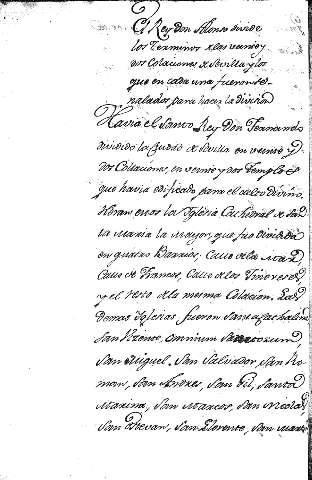 El Rey don Alonso divide
los Terminos a las veinte y
dos Colaciones de Sevilla y los
que en cada una fueron se
ñalados para hacer la division
Havia el Santo Rey Don Fernando
dividido la Ciudad de Sevilla en veinte y
dos Collacions, en veinte y dos Templos
que havia edificado para el culto Divino,
Heran estos la Iglesia Cathedral de San
ta Maria la Mayor, que fue dividida
en quatro Barrios, Calle de la Mar,
Calle de Francos, Calle de los Tintores
y el resto de la misma Colacion. Las
demas Iglesias fueron Santa Cathalina
San Ysidro, omnium Sanctorum,
San Miguel, San Salvador, San Ro
man, San Andres, San Gil, Santa
Marina, San Marcos, San Nicolas
San Estevan, San Llorente, San Martin